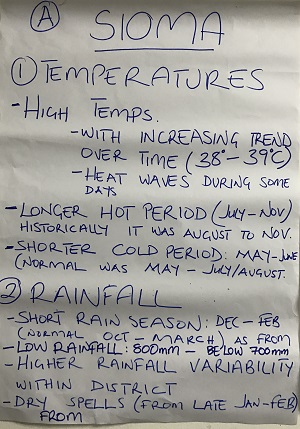 A
SIOMA
1 TEMPERATURES
- HIGH TEMPS.
- WITH INCREASING TREND
OVER TIME (38° - 39°C)
- HEAT WAVES DURING SOME
DAYS
- LONGER HOT PERIOD (JULY - NOV)
HISTORICALLY IT WAS AUGUST TO NOV.
- SHORTER COLD PERIOD: MAY-JUNE
(NORMAL WAS MAY - JULY/AUGUST.
2 RAINFALL
- SHORT RAIN SEASON: DEC - FEB
(NORMAL OCT - MARCH) AS FROM
- LOW RAINFALL: 800mm - BELOW 700mm
- HIGHER RAINFALL VARIABILITY
WITHIN DISTRICT
- DRY SPELLS (FROM LATE JAN-FEB)
FROM